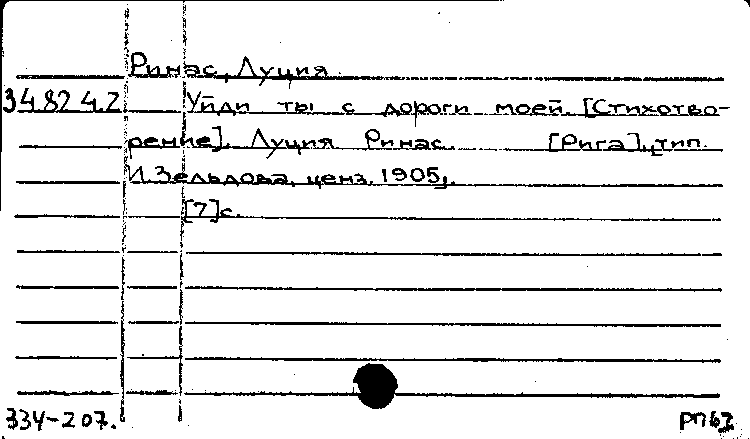 Ринас, Луция.
34.82 4.2 Уйди ты с дороги моей. [Стихотво-
рение]. Луция Ринас. [Рига], тип.
И. Зельдова, ценз. 1905].
[7]с.
334-207. РП67